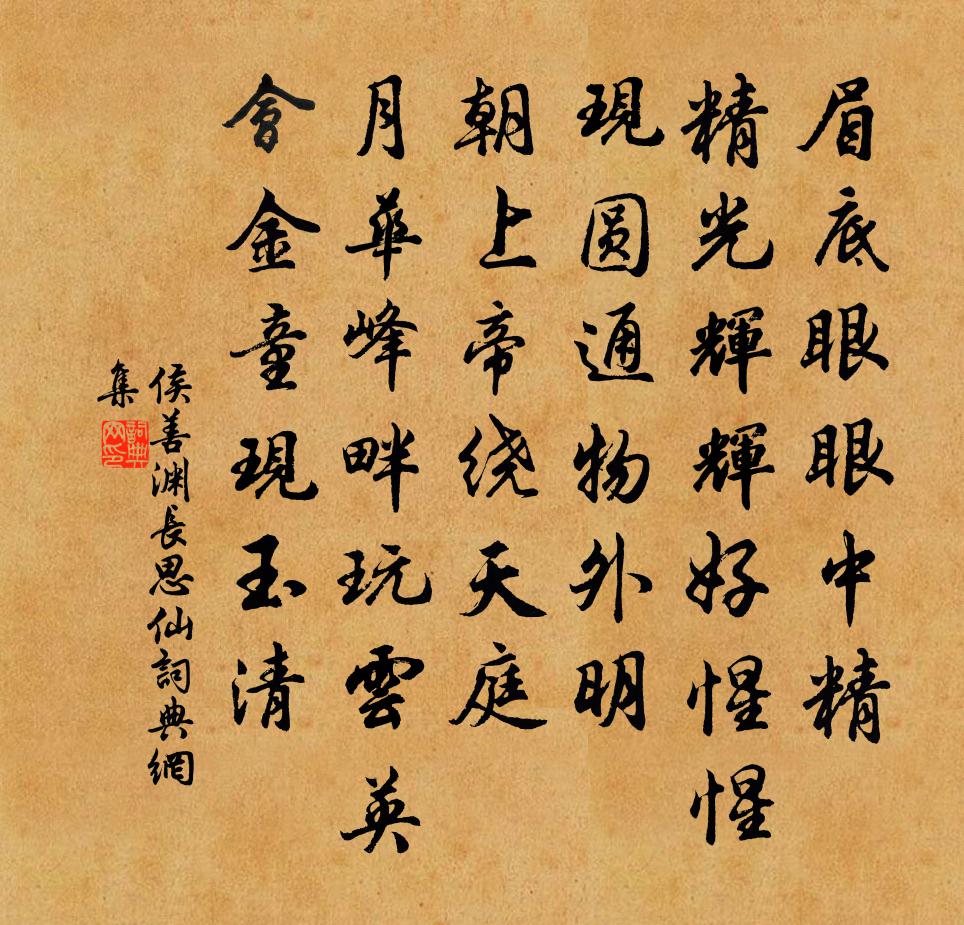 眉底眼眼中精
精光輝輝好惺惺
現圓通物外明
朝上帝绕天庭
月華峰畔玩雲英
會金童現玉清
侯善渊長思仙詞典網
集
詞典網印